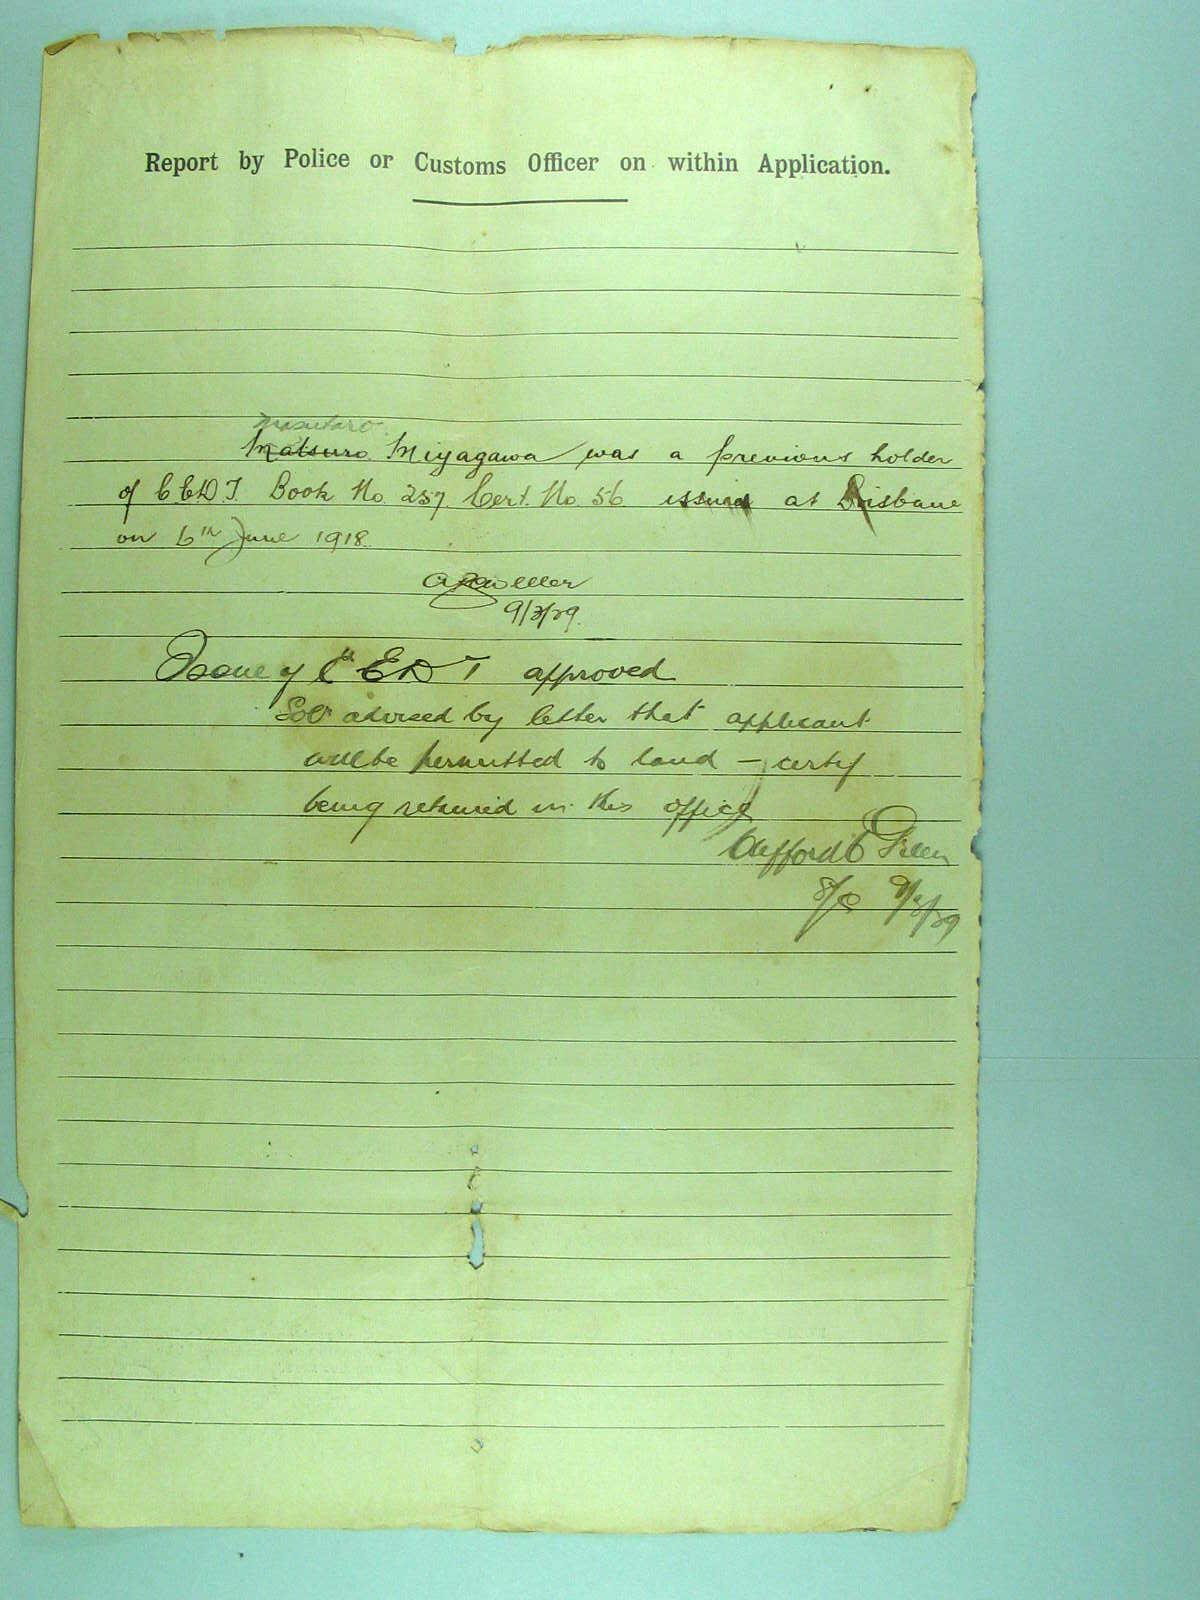 Report by Police or Customs Officer on within Application.
Masutaro
Matsuro Miyagawa was a previous holder
of C E D T Book No. 257 Cert. No. 56 issued at Brisbane
on 6th June 1918.
9/3/29.
Issue of C E D T approved
Solr advised by letter that applicant
will be permitted to land – certif
being retained in this office
Clifford C Green
S/C 9/3/29